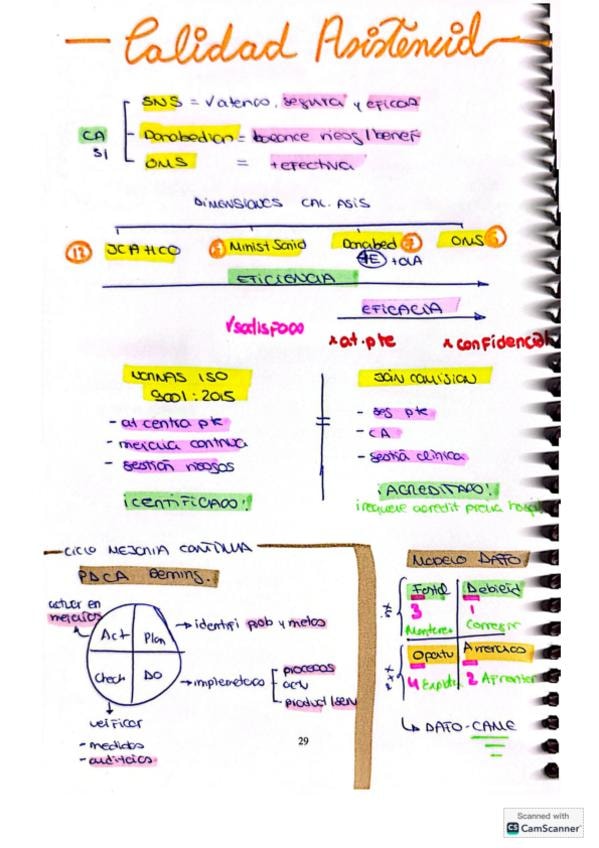 Calidad Asistencial
CA
SI
SNS = √atenco, segura y eficaz
Donabedian = balance riesg/benef
OMS = +efectiva
DIMENSIONES CAL. ASIS
12 JCAHCO
Minist Sanid
Donabed 7
OMS
4E +OLA
EFICIENCIA
EFICACIA
√satisfacc
x at. pte
x confidencial
NORMAS ISO
9001:2015
- at centra pte
- mejora continua
- gestión riesgos
¡CERTIFICADO!
JOIN COMISION
- seg pte
- CA
- gestión clínica
¡ACREDITADO!
requiere acredit previa hospi
CICLO MEJORIA CONTINUA
PDCA Deming.
actuar en
mejoras
Act
Plan
Check
DO
→ identifi prob y metas
→ implementac
procesos
actv
product/serv
verificar
- medidas
- auditorias
MODELO DAFO
Fortal
3
Mantener
Debilid
1
Corregir
Oportu
4 Explota
Amenazas
2 Afrontar
↳ DAFO-CAME
29
Scanned with
CS CamScanner